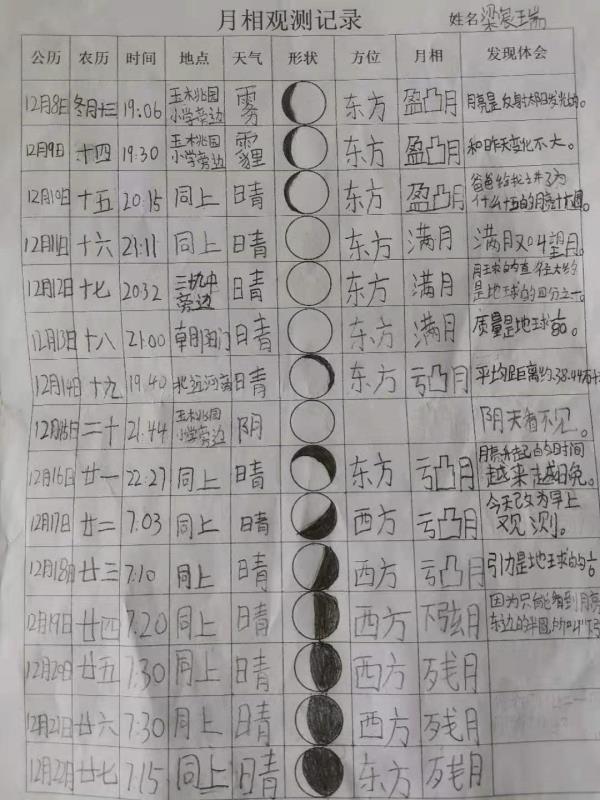 月相观测记录
姓名梁宸瑞
公历 农历 时间 地点 天气 形状 方位 月相 发现体会
12月8日 冬月十三 19:06 玉木兆园小学旁边 雾 东方 盈凸月 月亮是反射太阳发光的。
12月9日 十四 19:30 玉木兆园小学旁边 霾 东方 盈凸月 和昨天变化不大。
12月10日 十五 20:15 同上 晴 东方 盈凸月 爸爸给我讲了为什么十五的月亮十六圆。
12月11日 十六 21:11 同上 晴 东方 满月 满月又叫望月。
12月12日 十七 20:32 旁边 晴 东方 满月 月球的直径大约是地球的四分之一。
12月13日 十八 21:00 朝阳门 晴 东方 满月 质量是地球
12月14日 十九 19:40 北运河旁 晴 东方 亏凸月 平均距离约38.44万
12月15日 二十 21:44 玉木兆园小学旁边 阴 阴天看不见。
12月16日 廿一 22:27 同上 晴 东方 亏凸月 月亮升起的时间越来越晚。
12月17日 廿二 7:03 同上 晴 西方 亏凸月 今天改为早上观测。
12月18日 廿三 7:10 同上 晴 西方 亏凸月 引力是地球的
12月19日 廿四 7:20 同上 晴 西方 下弦月 因为只能看到月亮东边的半圆,所以叫"下弦
12月20日 廿五 7:30 同上 晴 西方 残月
12月21日 廿六 7:30 同上 晴 西方 残月
12月22日 廿七 7:15 同上 晴 东方 残月